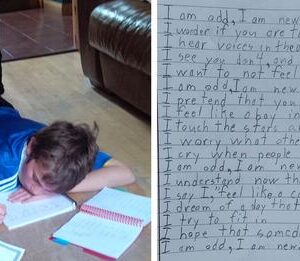 I am odd, I am new
I wonder if you are t
I hear voices in the a
I see you don't, and
I want to not feel
I am odd, I am new
I pretend that you
I feel like a boy in
I touch the stars a
I worry what othe
I cry when people
I am odd, I am new
I understand now th
I say I, "feel like a c
I dream of a day that
I try to fit in
I hope that someda
I am odd, I am new